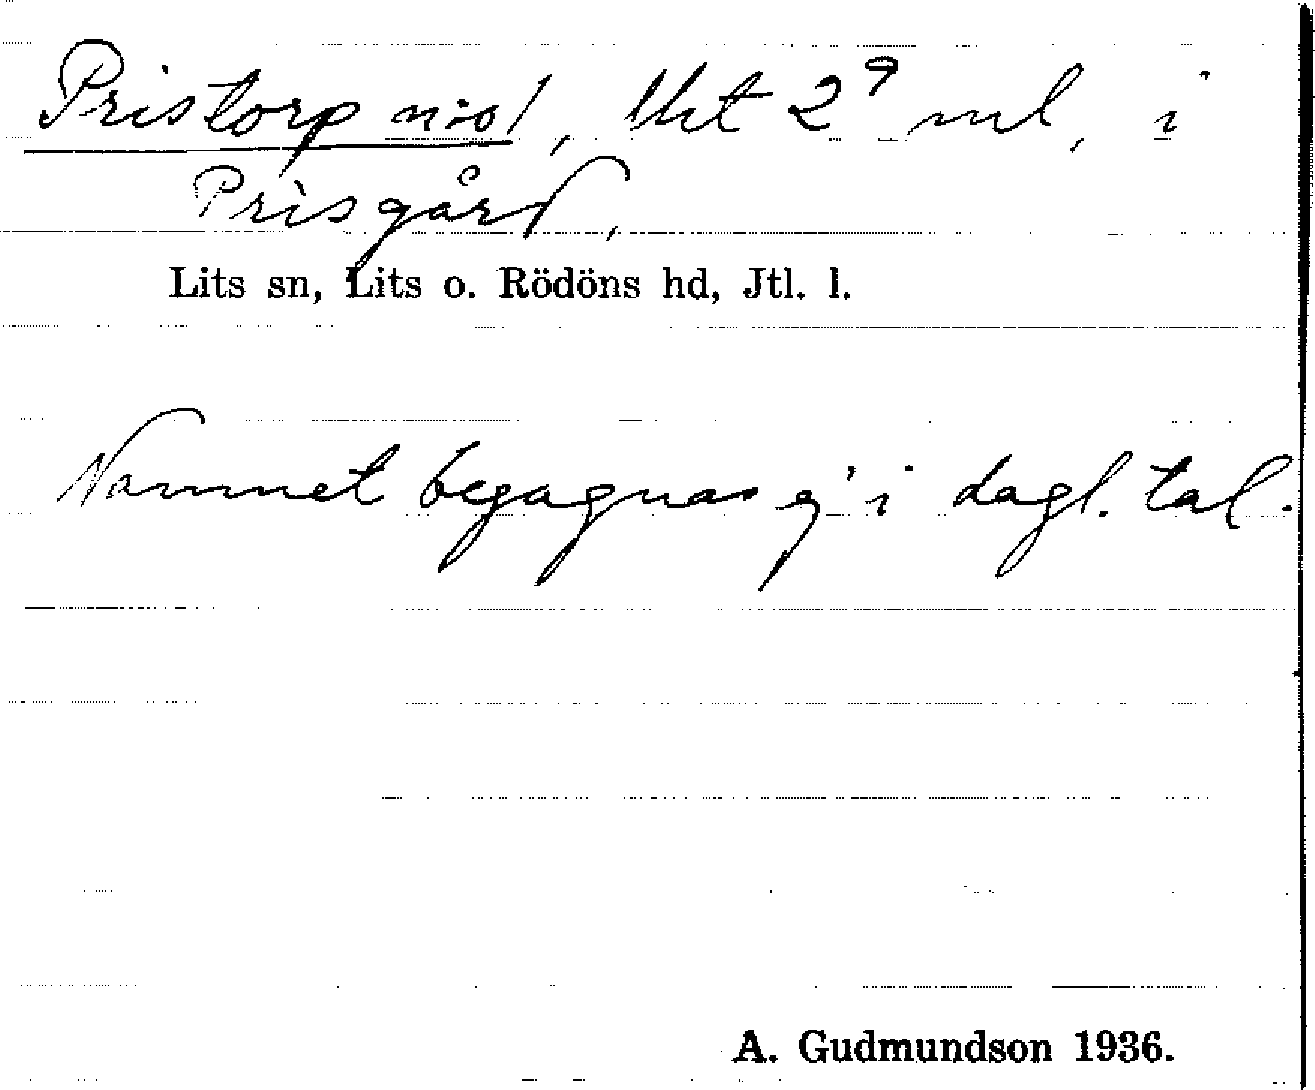 Pristorp n:o 1, lht 2⁹ ml, i
Prisgård,
Lits sn, Lits o. Rödöns hd, Jtl. l.
Namnet begagnas ej i dagl. tal.
A. Gudmundson 1936.